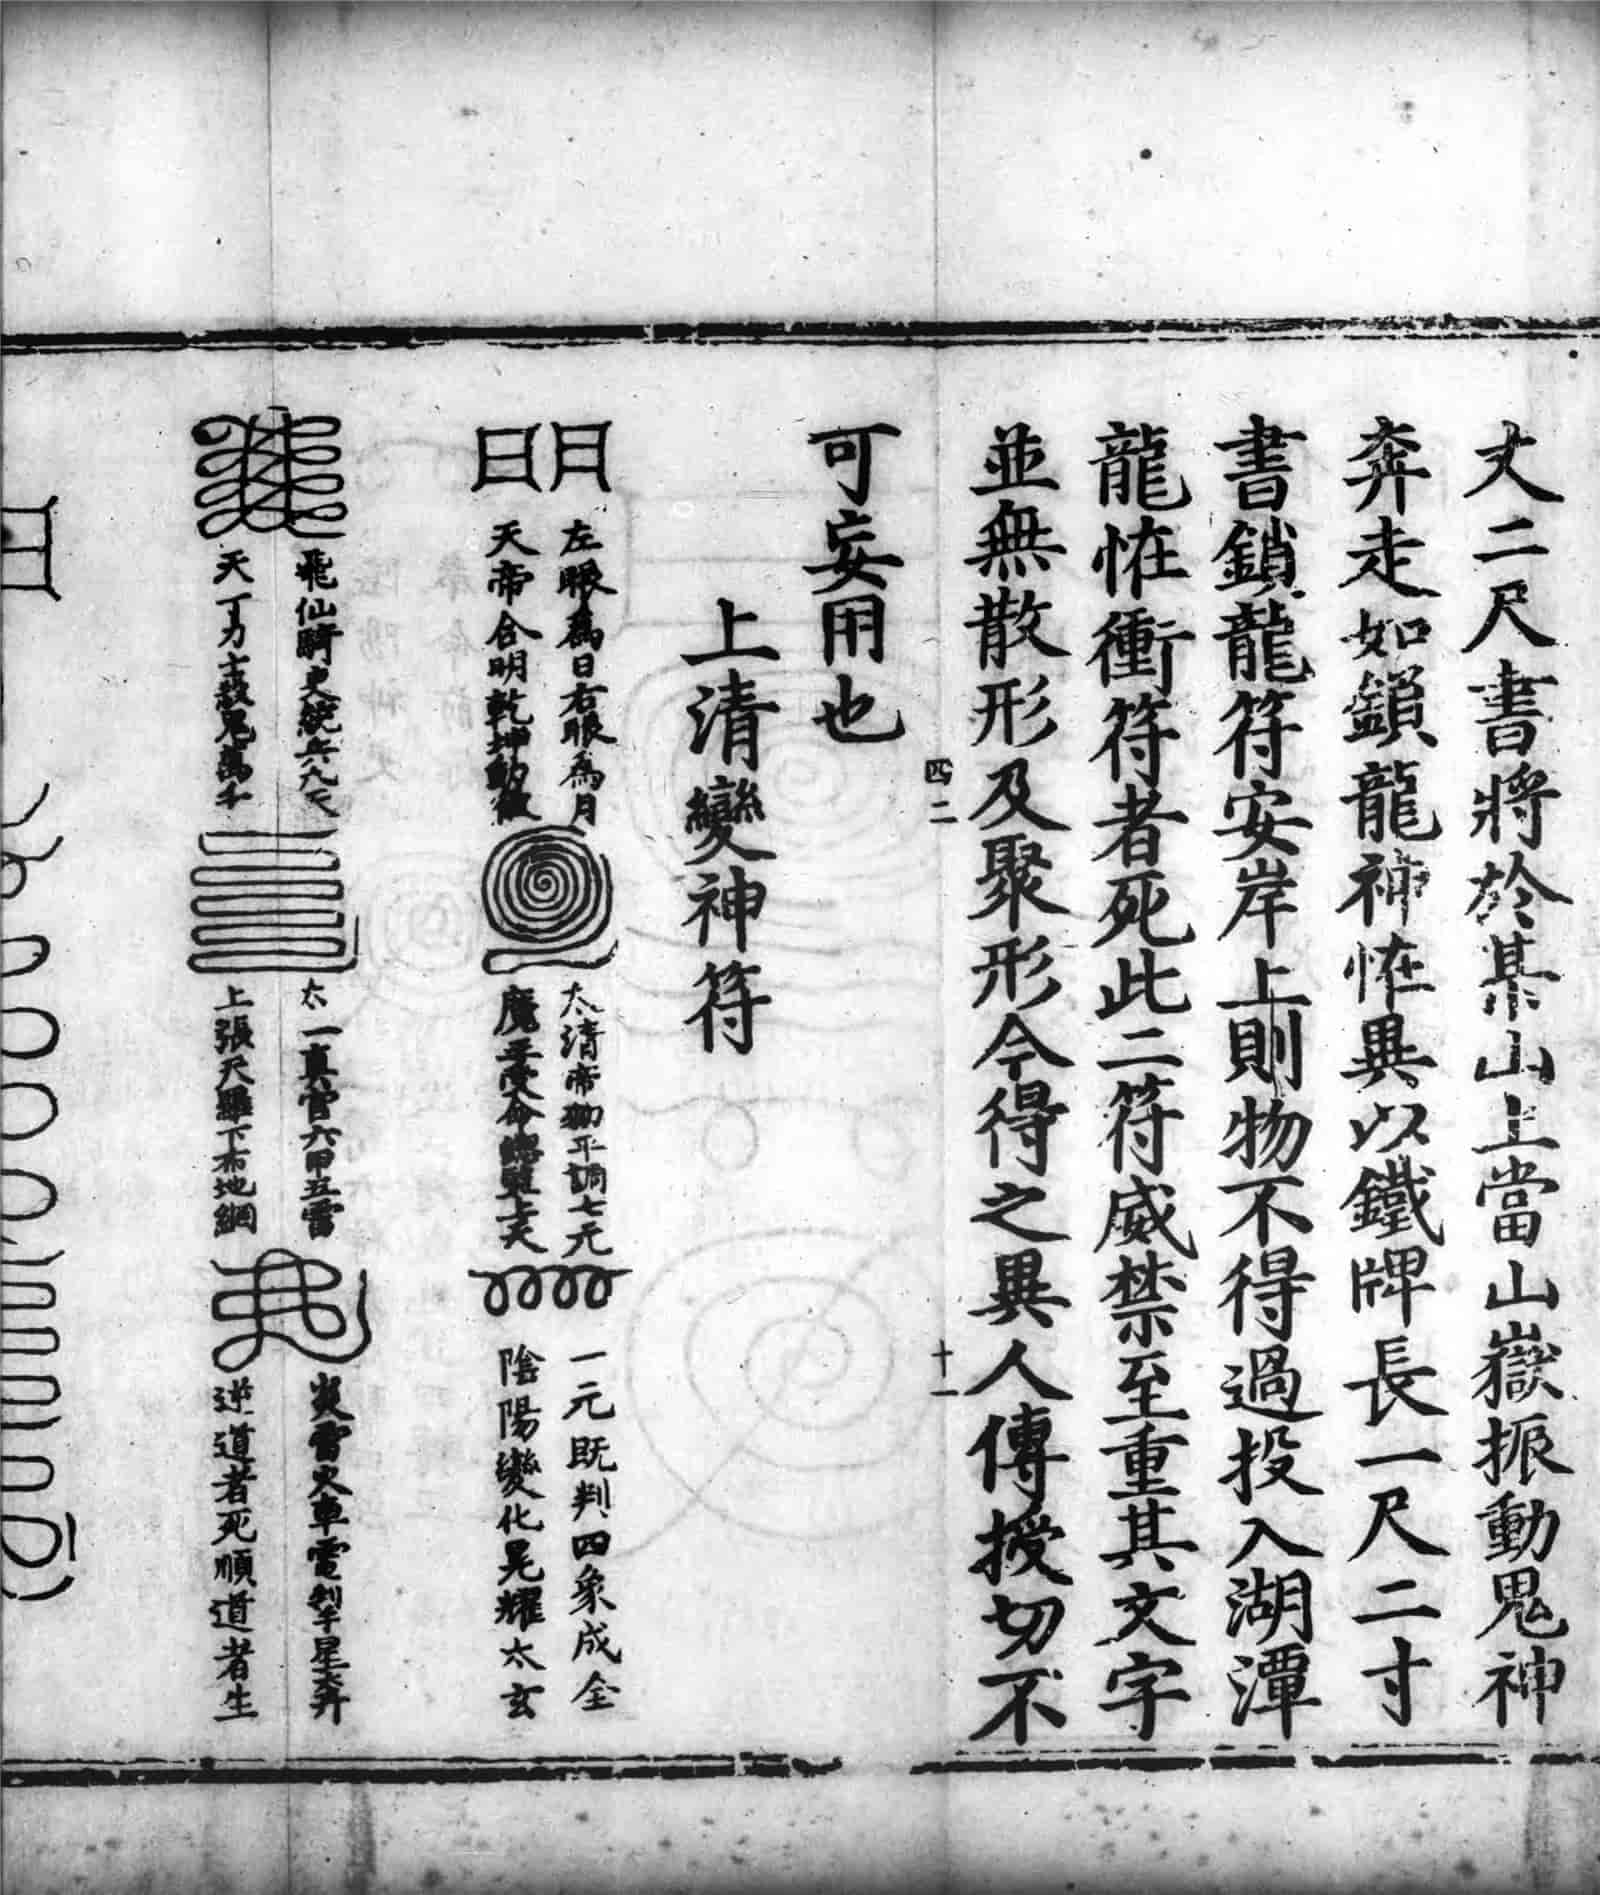 丈二尺書將於某山上當山嶽振動鬼神
奔走如鎖龍神恠異以鐵牌長一尺二寸
書鎖龍符安岸上則物不得過投入湖潭
龍恠衝符者死此二符威禁至重其文字
並無散形及聚形今得之異人傳授切不
四二
十一
可妄用也
上清變神符
月日
左眼為日右眼為月
天帝合明乾坤動
太清帝勑平調七元
魔王受命總監上天
一元既判四象成全
陰陽變化晃耀太玄
飛仙騎吏統兵九天
天丁力士殺鬼萬千
太一真官六甲五雷
上張天羅下布地網
炎雷火車電掣星奔
逆道者死順道者生
日